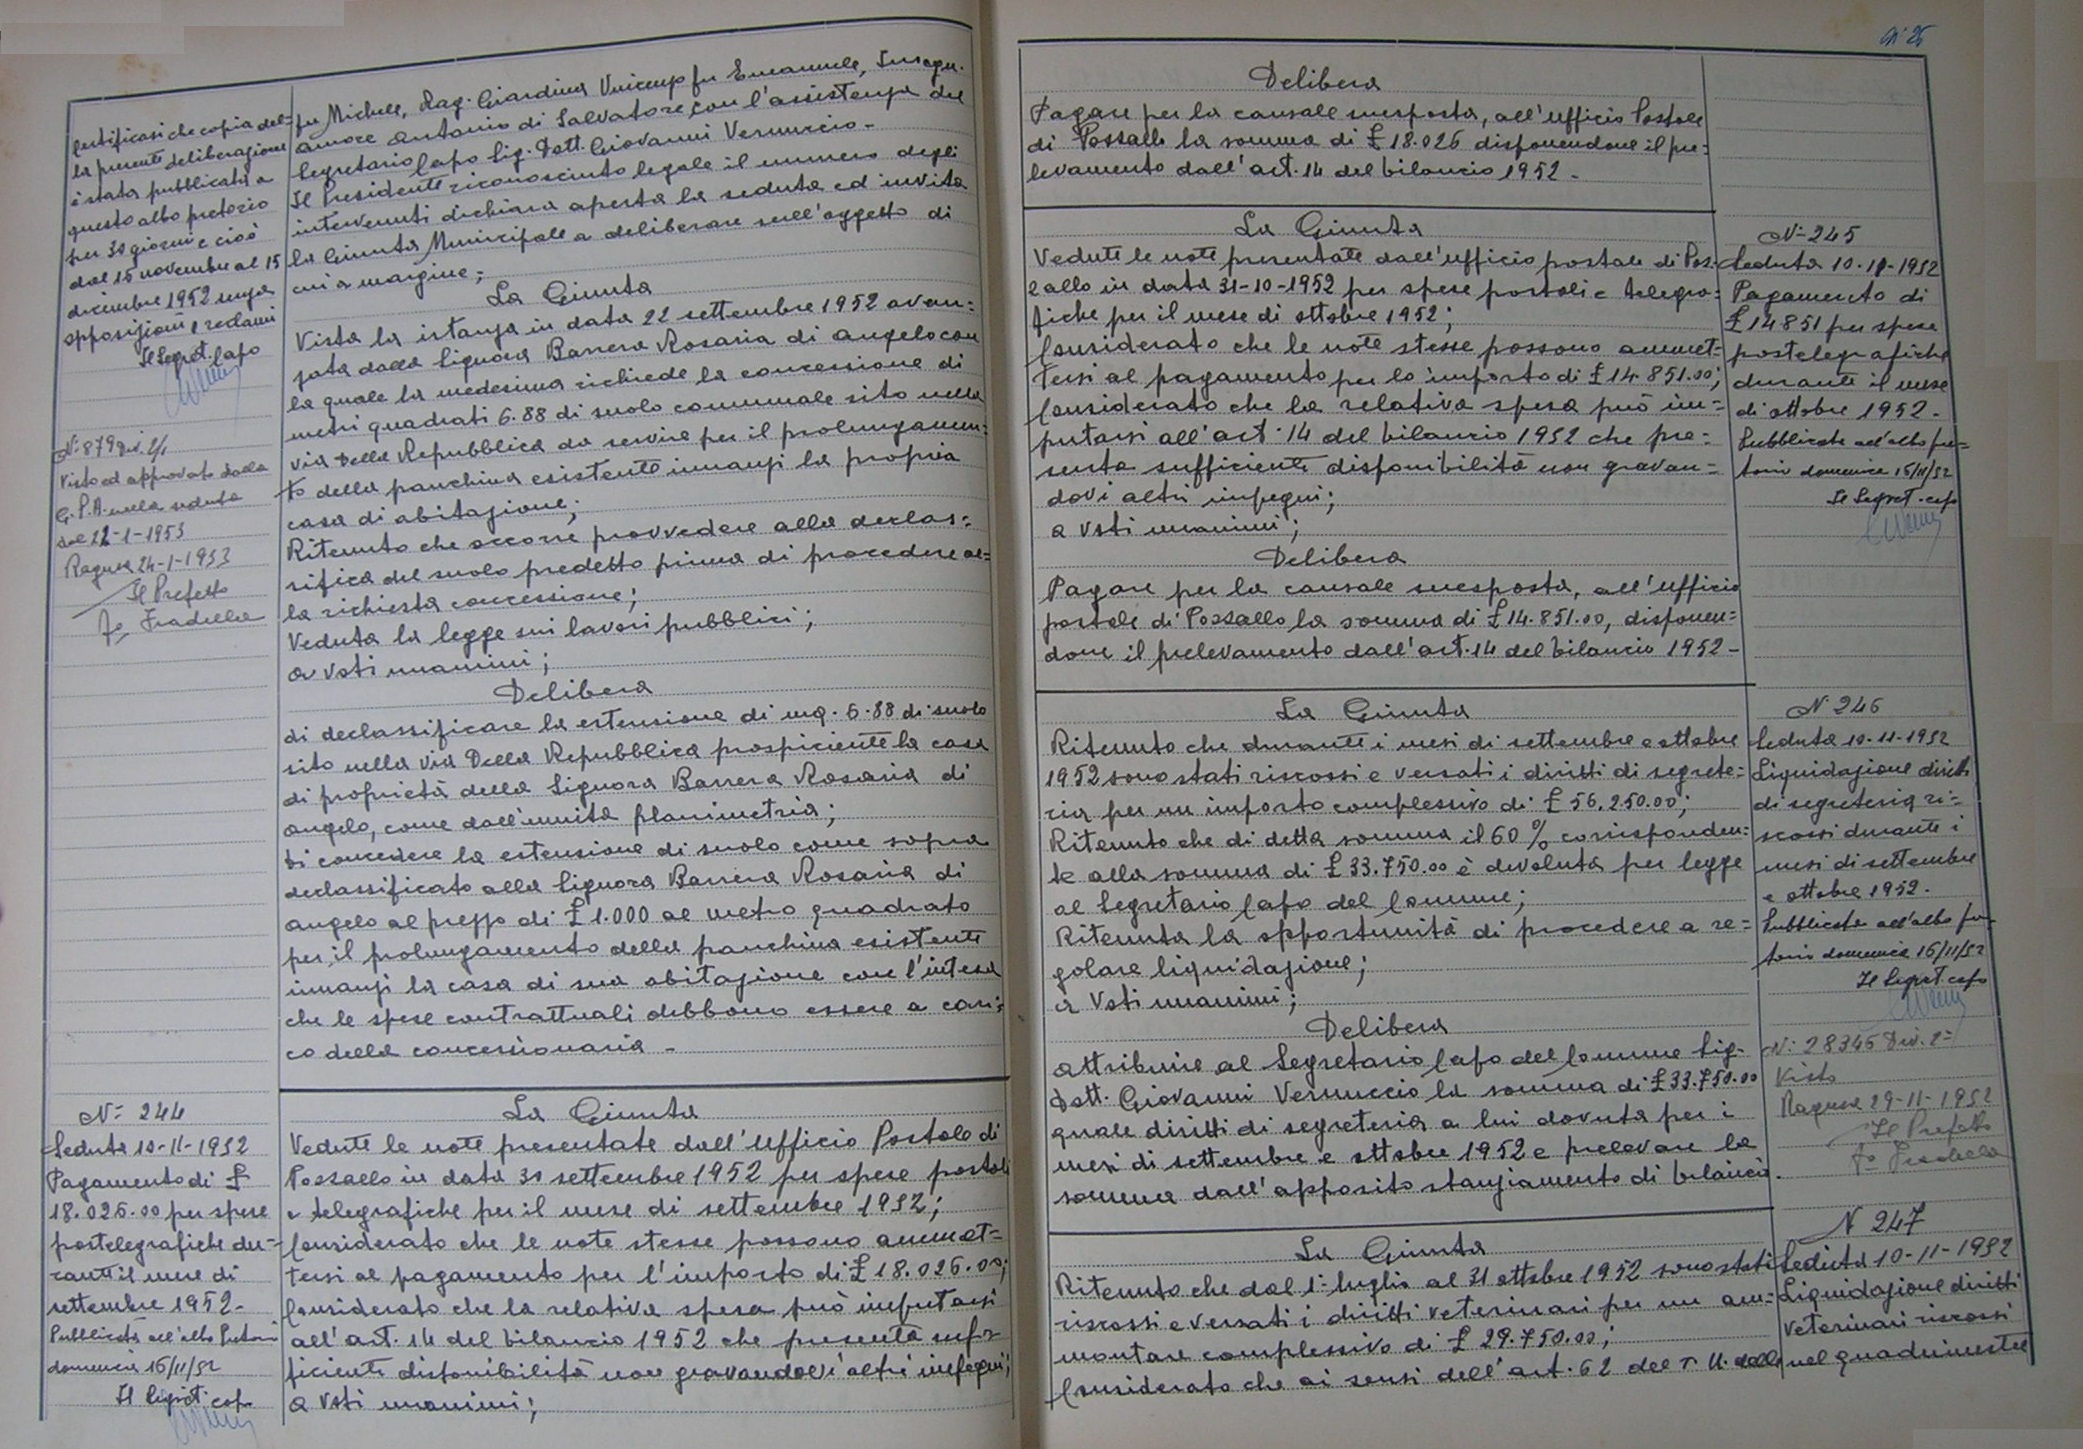 Certificasi che copia del-
la presente deliberazione
è stata pubblicata a
questo albo pretorio
per 30 giorni e cioè
dal 15 novembre al 15
dicembre 1952 senza
opposizioni e reclami
Il Segret. Capo
N: 879 Div. 2/1
Visto ed approvato dalla
G.P.A. nella seduta
del 22-1-1953
Ragusa 24-1-1953
Il Prefetto
fu Michele, Rag. Giardina Vincenzo fu Emanuele,
amore Antonio di Salvatore con l'assistenza del
Segretario Capo Sig. Dott. Giovanni Vernuccio -
Il Presidente riconosciuto legale il numero degli
intervenuti dichiara aperta la seduta ed invita
la Giunta Municipale a deliberare sull'oggetto di
cui a margine;
La Giunta
Vista la istanza in data 22 settembre 1952 avan=
zata dalla Signora Barrera Rosaria di Angelo con
la quale la medesima richiede la concessione di
metri quadrati 6.88 di suolo comunale sito nella
via Della Repubblica da servire per il prolungamen=
to della panchina esistente innanzi la propria
casa di abitazione;
Ritenuto che occorre provvedere alla declas=
sifica del suolo predetto prima di procedere al=
la richiesta concessione;
Veduta la legge sui lavori pubblici;
a voti unanimi;
Delibera
di declassificare la estensione di mq. 6.88 di suolo
sito nella via Della Repubblica prospiciente la casa
di proprietà della Signora Barrera Rosaria di
Angelo, come dall'unita planimetria;
di concedere la estensione di suolo come sopra
declassificato alla Signora Barrera Rosaria di
Angelo al prezzo di £ 1.000 al metro quadrato
per il prolungamento della panchina esistente
innanzi la casa di sua abitazione con l'intesa
che le spese contrattuali debbono essere a cari=
co della concessionaria -
N: 244
Seduta 10-11-1952
Pagamento di £
18.026.00 per spese
postelegrafiche du-
rante il mese di
settembre 1952-
Pubblicata all'albo Pretorio
domenica 16/11/52
Il Segret. capo
La Giunta
Vedute le note presentate dall'Ufficio Postale di
Pozzallo in data 30 settembre 1952 per spese postali
e telegrafiche per il mese di settembre 1952;
Considerato che le note stesse possono ammet=
tersi al pagamento per l'importo di £ 18.026.00;
Considerato che la relativa spesa può imputarsi
all'art. 14 del bilancio 1952 che presenta suf=
ficiente disponibilità non gravandovi altri impegni;
a voti unanimi;
Delibera
Pagare per la causale suesposta, all'ufficio Postale
di Pozzallo la somma di £ 18.026 disponendone il pre=
levamento dall'art. 14 del bilancio 1952 -
La Giunta
Vedute le note presentate dall'ufficio postale di Poz=
zallo in data 31-10-1952 per spese postali e telegra=
fiche per il mese di ottobre 1952;
Considerato che le note stesse possono ammet=
tersi al pagamento per lo importo di £ 14.851.00;
Considerato che la relativa spesa può im=
putarsi all'art. 14 del bilancio 1952 che pre=
senta sufficiente disponibilità non gravan=
dovi altri impegni;
a voti unanimi;
Delibera
Pagare per la causale suesposta, all'ufficio
postale di Pozzallo la somma di £ 14.851.00, disponen=
done il prelevamento dall'art. 14 del bilancio 1952 -
N: 245
Seduta 10-11-1952
Pagamento di
£ 14851 per spese
postelegrafiche
durante il mese
di ottobre 1952.
Pubblicata all'albo pre=
torio domenica 16/11/52
Il Segret. capo
La Giunta
Ritenuto che durante i mesi di settembre e ottobre
1952 sono stati riscossi e versati i diritti di segrete=
ria per un importo complessivo di £ 56.250.00;
Ritenuto che di detta somma il 60% corrisponden=
te alla somma di £ 33.750.00 è devoluta per legge
al Segretario Capo del Comune;
Ritenuta la opportunità di procedere a re=
golare liquidazione;
a voti unanimi;
Delibera
attribuire al Segretario Capo del Comune Sig.
Dott. Giovanni Vernuccio la somma di £ 33.750.00
quale diritti di segreteria a lui dovuta per i
mesi di settembre e ottobre 1952 e prelevare la
somma dall'apposito stanziamento di bilancio.
N 246
Seduta 10-11-1952
Liquidazione diritti
di segreteria ri=
scossi durante i
mesi di settembre
e ottobre 1952.
Pubblicata all'albo pre=
torio domenica 16/11/52
Il Segret. capo
N: 28346 Div. 2=
Visto
Ragusa 29-11-1952
Il Prefetto
La Giunta
Ritenuto che dal 1: luglio al 31 ottobre 1952 sono stati
riscossi e versati i diritti veterinari per un am=
montare complessivo di £ 29.750.00;
Considerato che ai sensi dell'art. 62 del T.U. delle
N 247
Seduta 10-11-1952
Liquidazione diritti
veterinari riscossi
nel quadrimestre